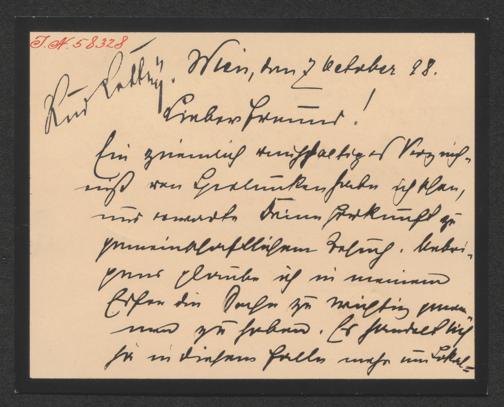 J. N. 58328
Wien, den 7 October 98.
Lieber Freund!
Ein ziemlich reichhaltiges Verzeich-
niß von Spelunken habe ich schon,
und erwarte Deine Herkunft zu
gemeinschaftlichem Besuch. Uebri-
gens glaube ich in meinem
Eifer die Sache zu wichtig genom-
men zu haben. Es handelt sich
ja in diesem Falle mehr um Lokal-